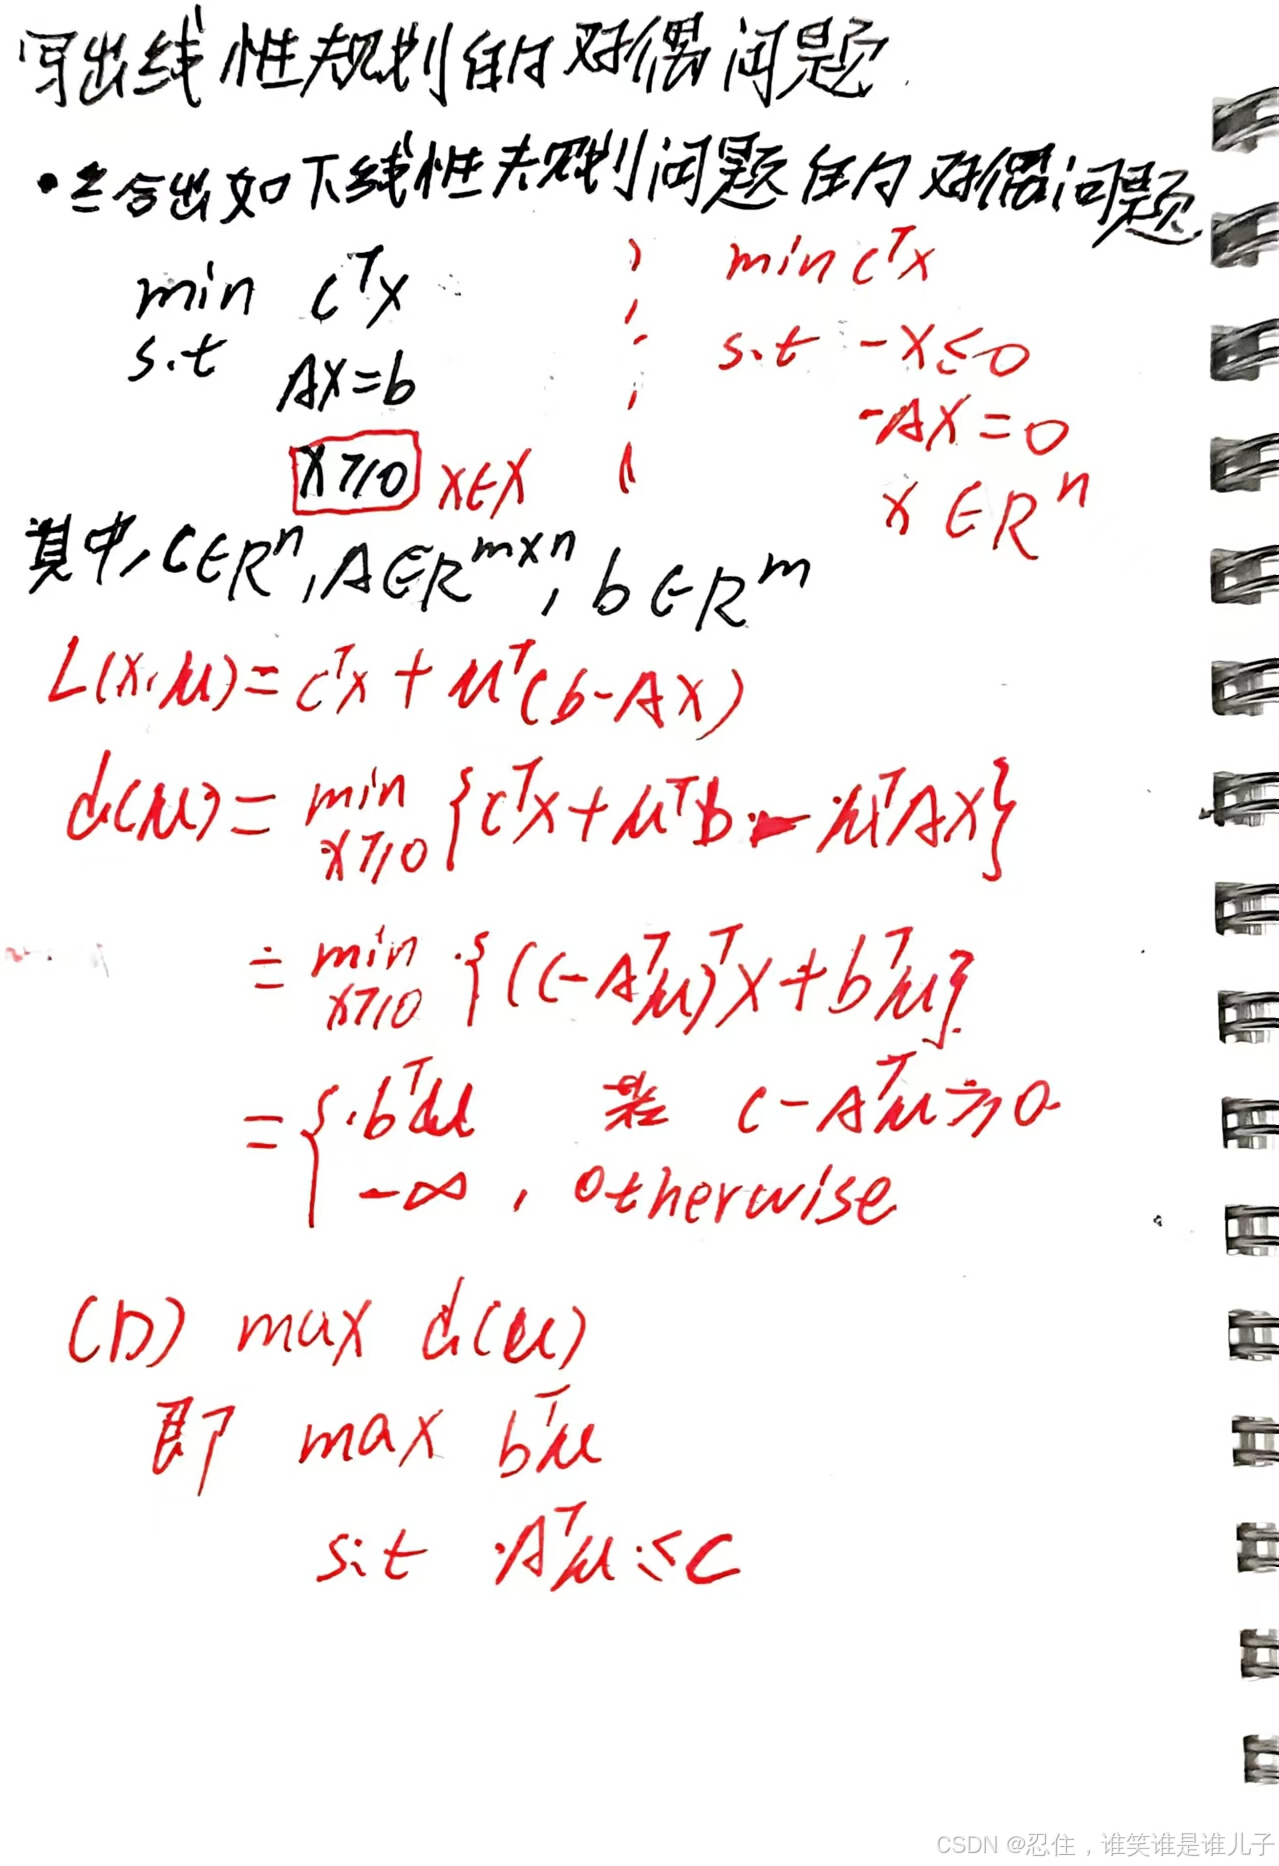 写出线性规划的对偶问题.
• 给出如下线性规划问题的对偶问题
min cᵀx
s.t Ax=b
x≥0 x∈X
min cᵀx
s.t -x≤0
-Ax=0
x∈Rⁿ
其中, c∈Rⁿ, A∈Rᵐˣⁿ, b∈Rᵐ
L(x,μ)=cᵀx+μᵀ(b-Ax)
d(μ)= min {cᵀx+μᵀb-μᵀAx}
x≥0
= min {(c-Aᵀμ)ᵀx+bᵀμ}
x≥0
= { bᵀμ 若 c-Aᵀμ≥0
-∞, otherwise
(D) max d(μ)
即 max bᵀμ
s.t Aᵀμ≤c
CSDN @忍住,谁笑谁是谁儿子